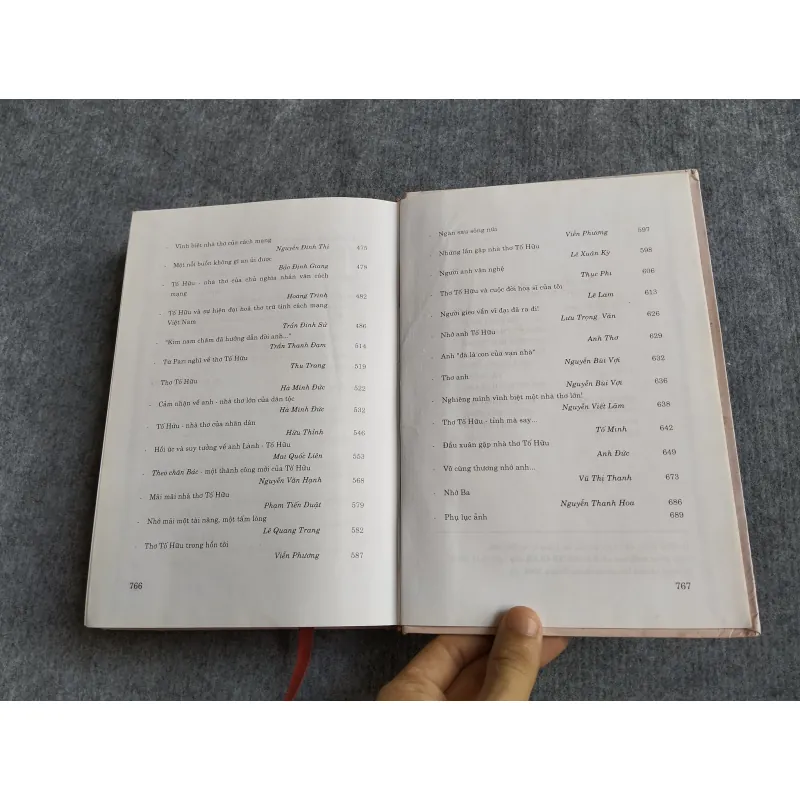 - Vĩnh biệt nhà thơ của cách mạng
Nguyễn Đình Thi 476
- Một nỗi buồn không gì an ủi được
Bảo Định Giang 478
- Tố Hữu - nhà thơ của chủ nghĩa nhân văn cách
mạng
Hoàng Trinh 482
- Tố Hữu và sự hiện đại hoá thơ trữ tình cách mạng
Việt Nam
Trần Đình Sử 486
- "Kim nam châm đã hướng dẫn đời anh..."
Trần Thanh Đạm 514
- Từ Pari nghĩ về thơ Tố Hữu
Thu Trang 519
- Thơ Tố Hữu
Hà Minh Đức 522
- Cảm nhận về anh - nhà thơ lớn của dân tộc
Hà Minh Đức 532
- Tố Hữu - nhà thơ của nhân dân
Hữu Thỉnh 546
- Hồi ức và suy tưởng về anh Lành - Tố Hữu
Mai Quốc Liên 553
- Theo chân Bác - một thành công mới của Tố Hữu
Nguyễn Văn Hạnh 568
- Mãi mãi nhà thơ Tố Hữu
Phạm Tiến Duật 579
- Nhớ mãi một tài năng, một tấm lòng
Lê Quang Trang 582
- Thơ Tố Hữu trong hồn tôi
Viễn Phương 587
766
- Ngàn sau sông núi
Viễn Phương 597
- Những lần gặp nhà thơ Tố Hữu
Lê Xuân Kỳ 598
- Người anh văn nghệ
Thục Phi 606
- Thơ Tố Hữu và cuộc đời hoạ sĩ của tôi
Lê Lam 613
- Người gieo vần vĩ đại đã ra đi!
Lưu Trọng Văn 626
- Nhớ anh Tố Hữu
Anh Thơ 629
- Anh "đã là con của vạn nhà"
Nguyễn Bùi Vợi 632
- Thơ anh
Nguyễn Bùi Vợi 636
- Nghiêng mình vĩnh biệt một nhà thơ lớn!
Nguyễn Viết Lãm 638
- Thơ Tố Hữu - tình mà say...
Tố Minh 642
- Đầu xuân gặp nhà thơ Tố Hữu
Anh Đức 649
- Vô cùng thương nhớ anh...
Vũ Thị Thanh 673
- Nhớ Ba
Nguyễn Thanh Hoa 686
- Phụ lục ảnh 689
767